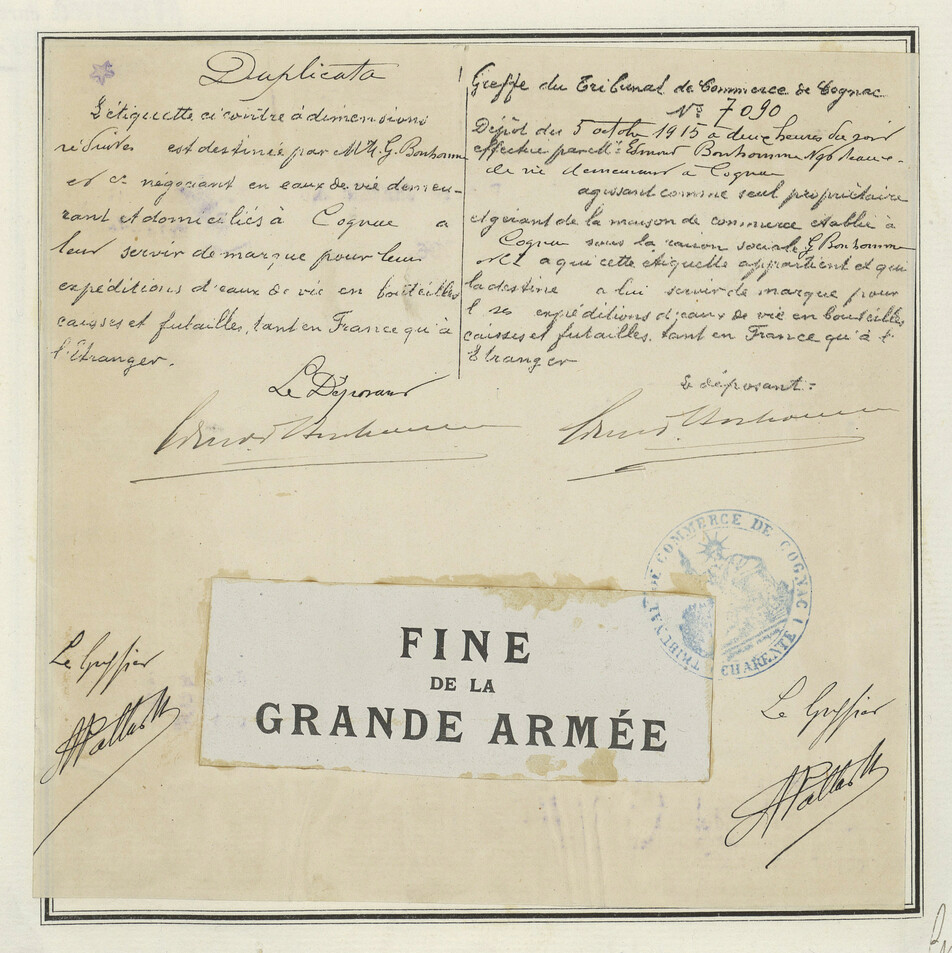 Duplicata
L'étiquette ci contre à dimensions
réduites est destinée par MM. G. Bonhomme
et Cie négociant en eaux de vie demeu-
rant et domiciliés à Cognac a
leur servir de marque pour leur
expéditions d'eaux de vie en bouteilles
caisses et futailles, tant en France qu'à
l'Étranger.
Le Déposant
Greffe du Tribunal de Commerce de Cognac
No 7090
Dépôt du 5 octobre 1915 à deux heures du soir
effectué par Mr Edmond Bonhomme Ngt d'eaux-
de vie demeurant à Cognac
agissant comme seul propriétaire
et gérant de la maison de commerce établie à
Cognac sous la raison sociale G. Bonhomme
et Cie a qui cette étiquette appartient et qui
la destine a lui servir de marque pour
ses expéditions d'eaux de vie en bouteilles
caisses et futailles. tant en France qu'à l'
Etranger
Le déposant
TRIBUNAL DE COMMERCE DE COGNAC
CHARENTE
FINE
DE LA
GRANDE ARMÉE
Le Greffier
Le Greffier